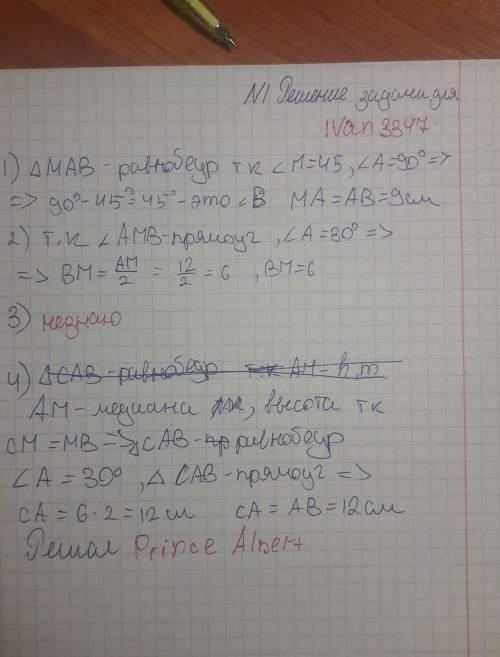 N1 Решение задачи для
IVan 3847.
1) △MAB - равнобедр т к ∠M=45, ∠A=90° =>
=> 90° - 45° = 45° - это ∠B MA = AB = 9см
2) т.к ∠AMB - прямоуг, ∠A = 30° =>
=> BM = AM/2 = 12/2 = 6 , BM = 6
3) незнаю
4) △CAB - равнобедр т.к AM - h, m
AM - медиана, высота т к
CM = MB => △CAB - равнобедр
∠A = 30°, △ CAB - прямоуг =>
CA = 6 · 2 = 12см CA = AB = 12см
Решал Prince Albert